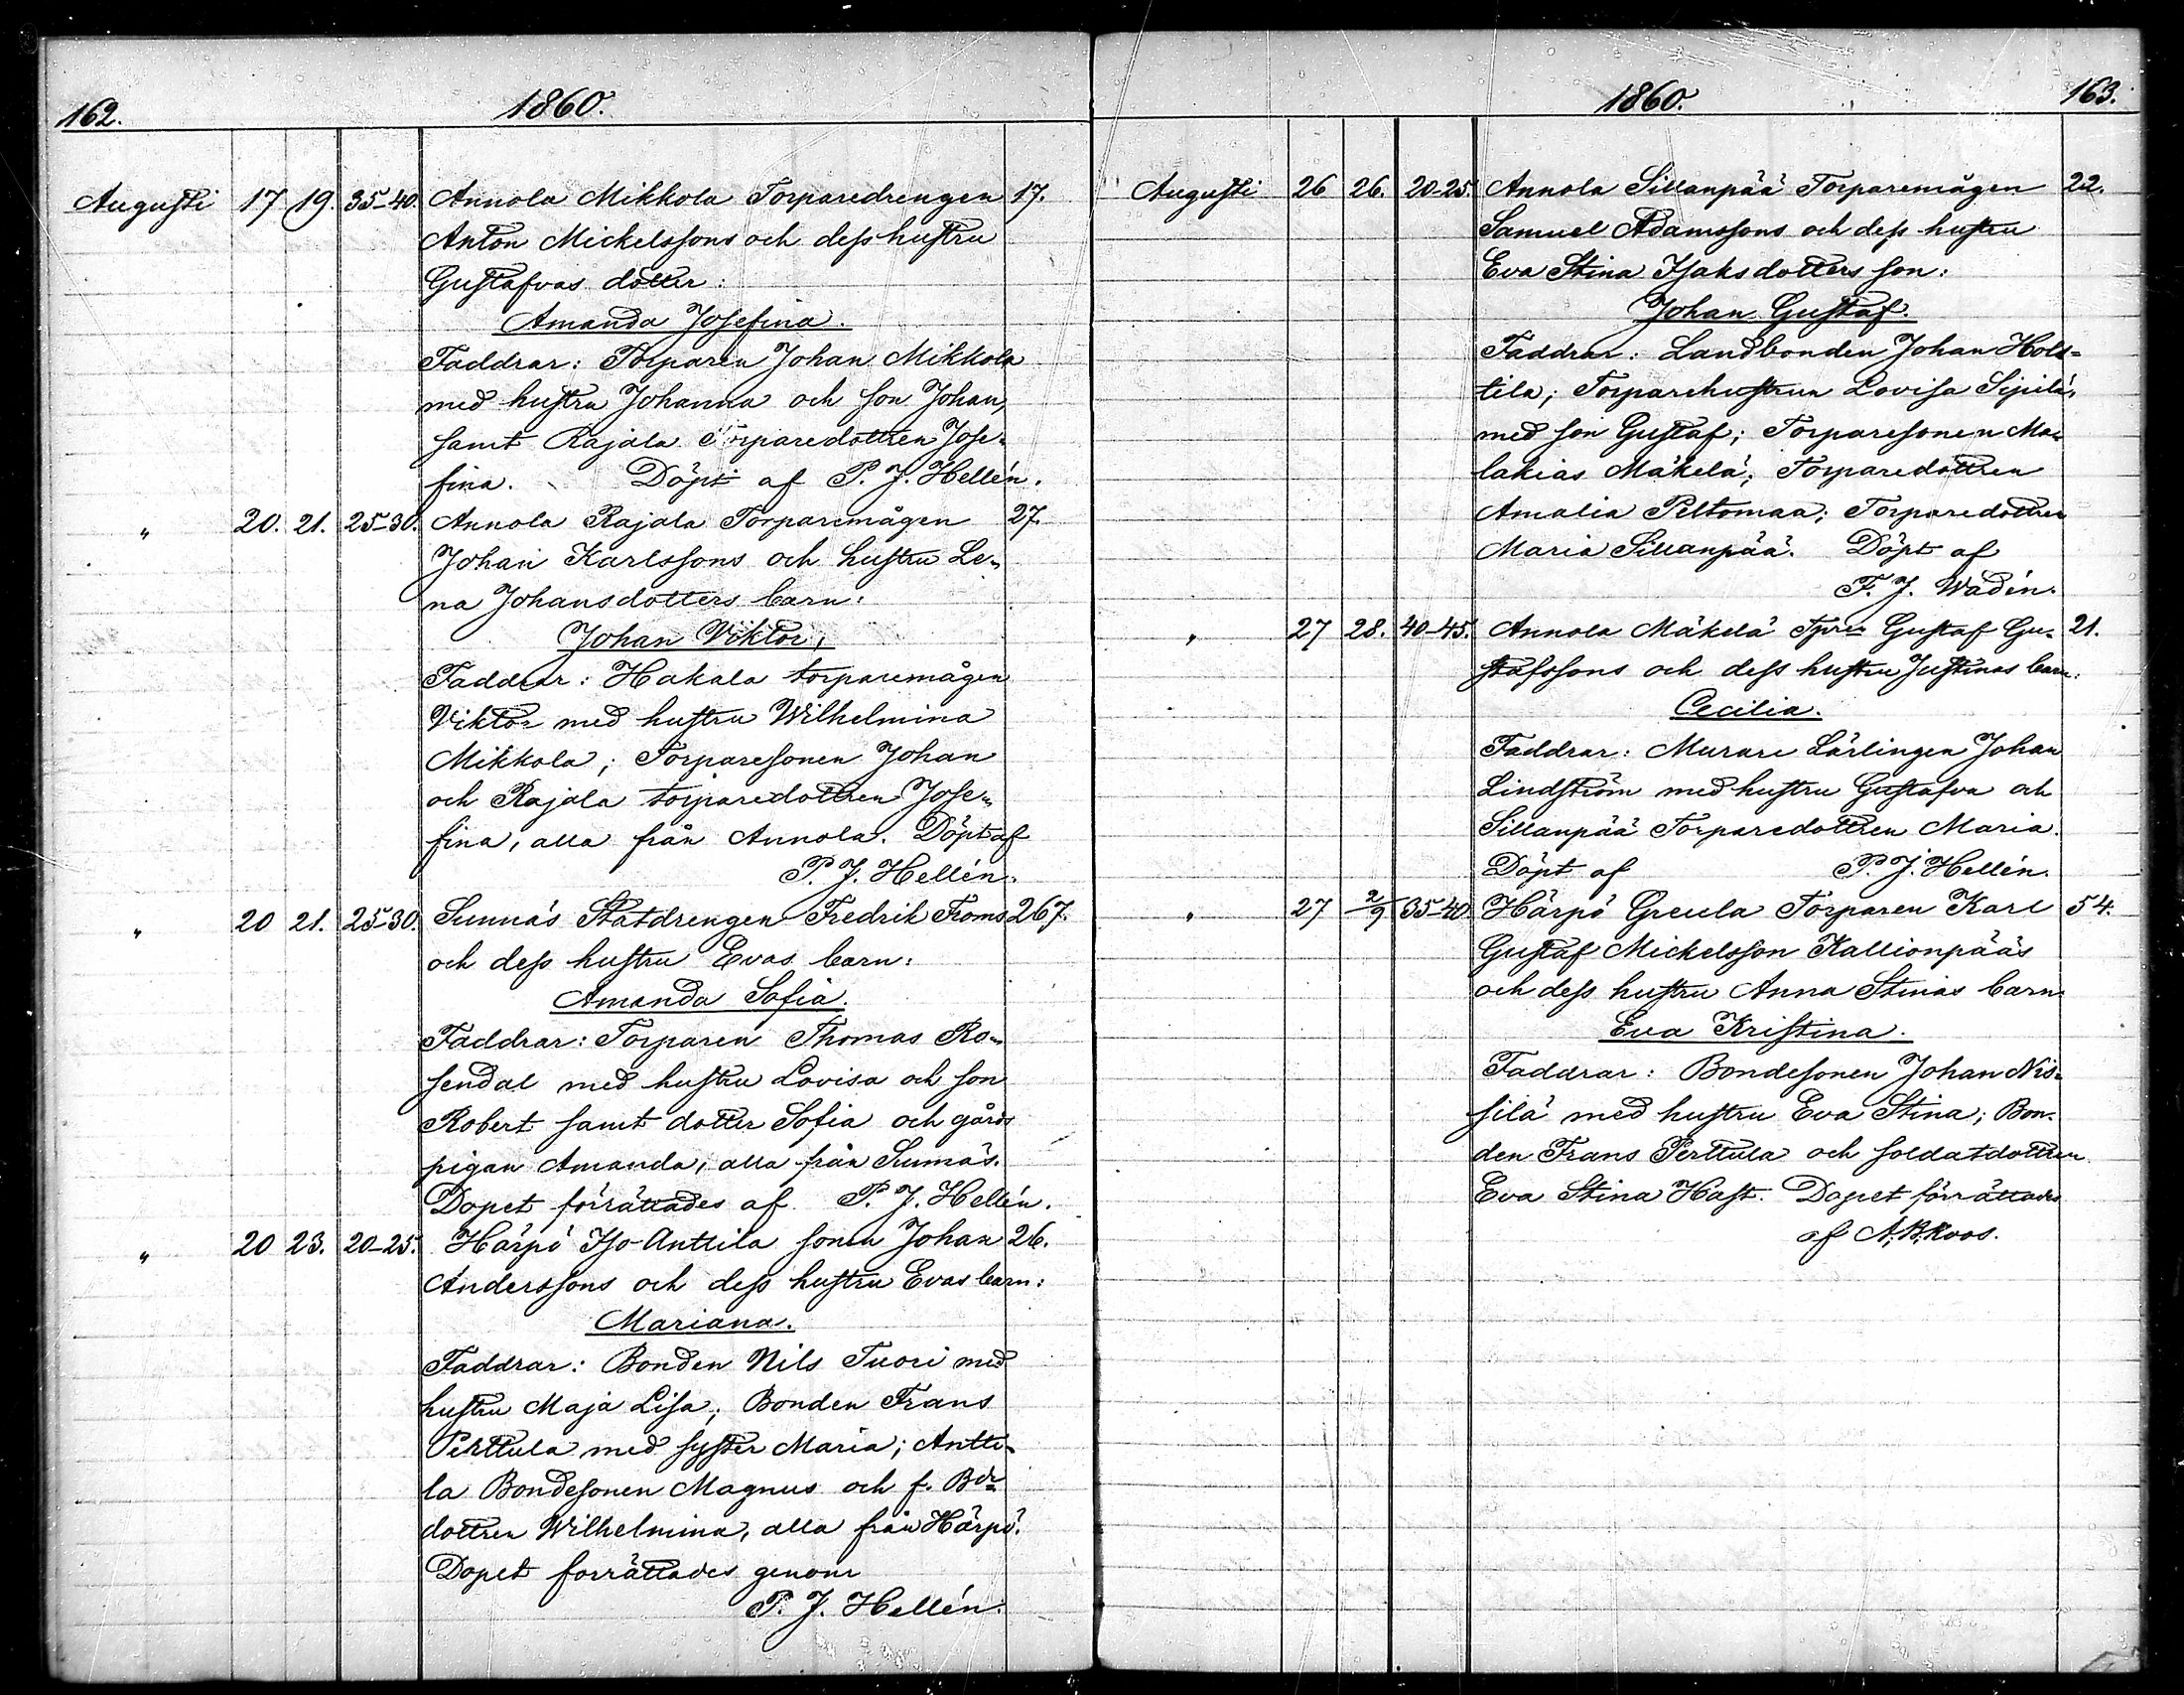 162.
1860.
Augusti 17 19. 35-40. Annola Mikkola Torparedrengen 17.
Anton Mickelssons och dess hustru
Gustafvas dotter:
Amanda Josefina.
Faddrar: Torparen Johan Mikkola
med hustru Johanna och son Johan,
samt Rajala Torparedottren Jose-
fina. Döpt af P. J. Hellén.
" 20. 21. 25-30. Annola Rajala Torparemågen 27.
Johan Karlssons och hustru Le-
na Johansdotters barn:
Johan Viktor,
Faddrar: Hakala torparemågen
Viktor med hustru Wilhelmina
Mikkola; Torparesonen Johan
och Rajala torparedottren Jose-
fina, alla från Annola. Döpt af
P. J. Hellén.
" 20 21. 25-30. Sunnäs Statdrengen Fredrik Froms 267.
och dess hustru Evas barn:
Amanda Sofia.
Faddrar: Torparen Thomas Ro-
sendal med hustru Lovisa och son
Robert samt dotter Sofia och gårds
pigan Amanda, alla från Sunnäs.
Dopet förrättades af P. J. Hellén.
" 20 23. 20-25. Härpö Iso-Anttila sonen Johan 26.
Anderssons och dess hustru Evas barn:
Mariana.
Faddrar: Bonden Nils Tuori med
hustru Maja Lisa; Bonden Frans
Perttula med syster Maria; Antti-
la Bondesonen Magnus och f. Bde
dottren Wilhelmina, alla från Härpö.
Dopet forrättades genom
P. J. Hellén.
1860.
163.
Augusti 26 26. 20-25. Annola Sillanpää Torparemågen 22.
Samuel Adamssons och dess hustru
Eva Stina Isaksdotters son:
Johan Gustaf.
Faddrar: Landbonden Johan Hols-
tila; Torparehustrun Lovisa Sipilä,
med son Gustaf; Torparesonen Ma-
lakias Mäkelä; Torparedottren
Amalia Peltomaa; Torparedottren
Maria Sillanpää. Döpt af
F. J. Wadén.
" 27 28. 40-45. Annola Mäkelä Tpren Gustaf Gu- 21.
stafssons och dess hustru Justinas barn:
Cecilia.
Faddrar: Murare Lärlingen Johan
Lindström med hustru Gustafva och
Sillanpää Torparedottren Maria.
Döpt af P. J. Hellén.
" 27 2/9 35-40 Härpö Greula Torparen Karl 54.
Gustaf Mickelsson Kallionpääs
och dess hustru Anna Stinas barn
Eva Kristina.
Faddrar: Bondesonen Johan Nis-
silä med hustru Eva Stina; Bon-
den Frans Perttula och soldatdottren
Eva Stina Hast. Dopet förrättades
af N. B. Roos.